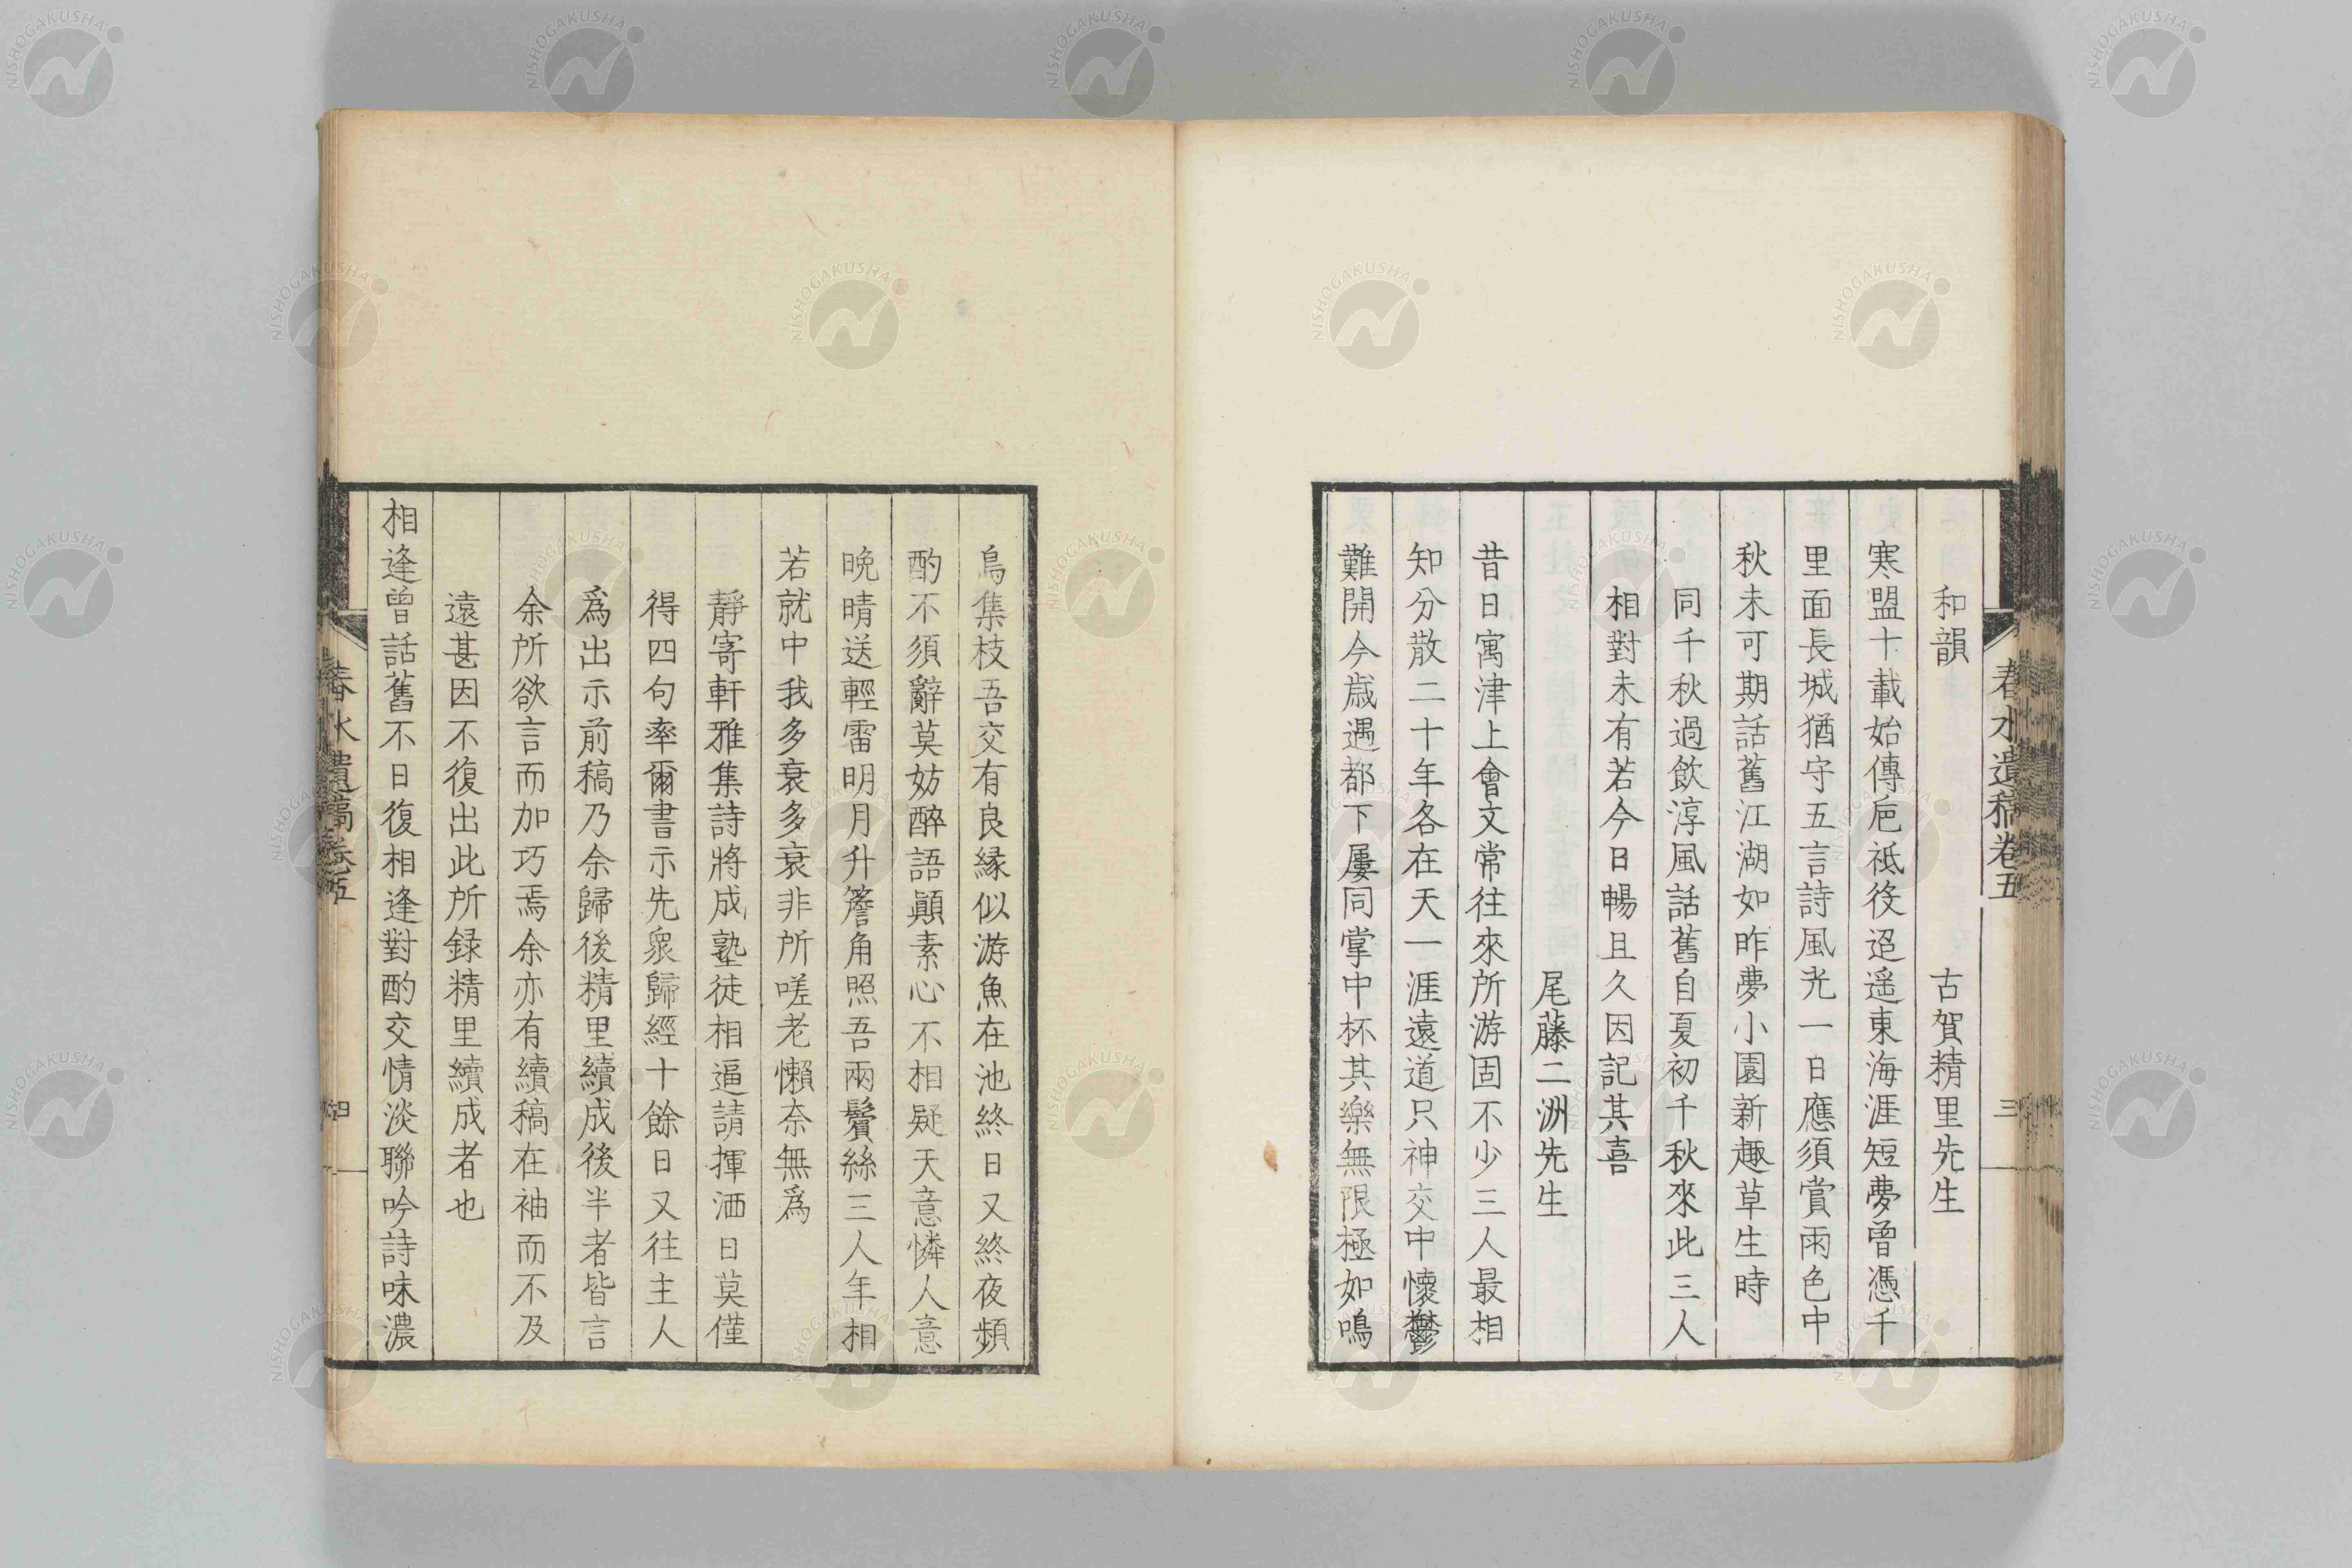 春水遺稿卷五
三
和韻
古賀精里先生
寒盟十載始傳卮祗役迢遥東海涯短夢曾憑千
里面長城猶守五言詩風光一日應須賞雨色中
秋未可期話舊江湖如昨夢小園新趣草生時
同千秋過飲淳風話舊自夏初千秋來此三人
相對未有若今日暢且久因記其喜
尾藤二洲先生
昔日寓津上會文常往來所游固不少三人最相
知分散二十年各在天一涯遠道只神交中懷鬱
難開今歳遇都下屢同掌中杯其樂無限極如鳴
鳥集枝吾交有良緣似游魚在池終日又終夜頻
酌不須辭莫妨醉語顚素心不相疑天意憐人意
晩晴送輕雷明月升簷角照吾兩鬢絲三人年相
若就中我多衰多衰非所嗟老懶奈無爲
靜寄軒雅集詩將成塾徒相逼請揮洒日莫僅
得四句率爾書示先衆歸經十餘日又往主人
爲出示前稿乃余歸後精里續成後半者皆言
余所欲言而加巧焉余亦有續稿在袖而不及
遠甚因不復出此所録精里續成者也
相逢曾話舊不日復相逢對酌交情淡聯吟詩味濃
春水遺稿卷五
四
NISHOGAKUSHA